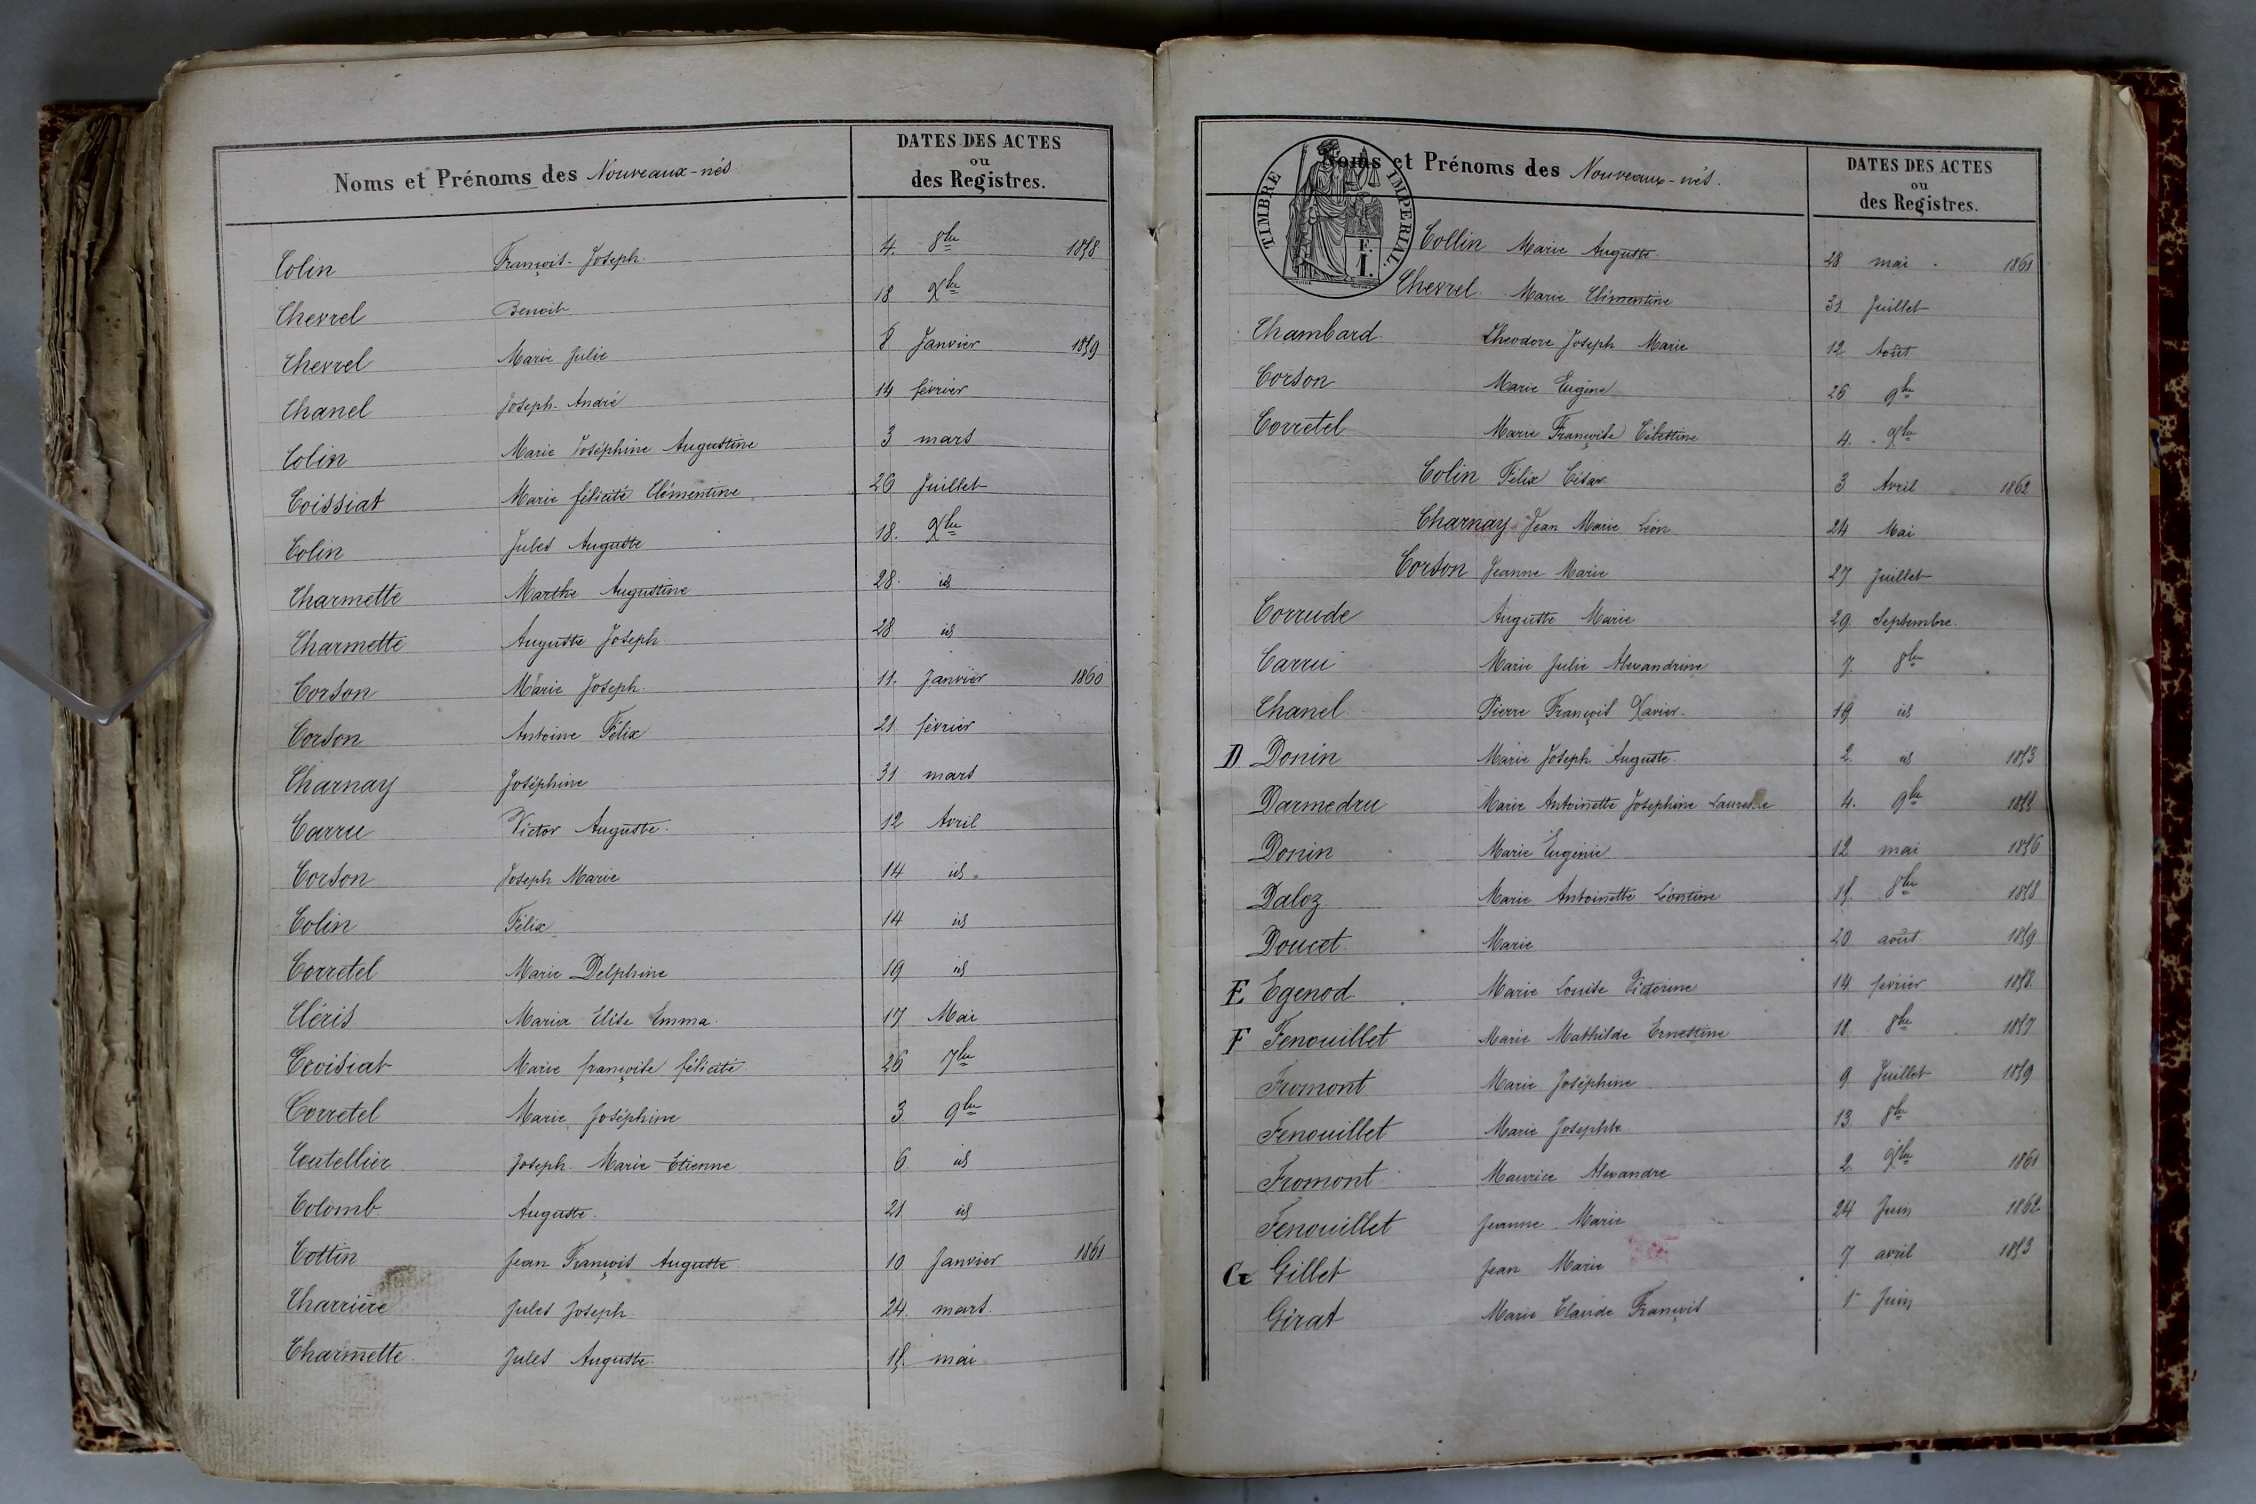 Noms et Prénoms des Nouveaux-nés
DATES DES ACTES
ou
des Registres.
Colin François-Joseph 4. 8bre 1858
Chevrel Benoit 18 Xbre
Chevrel Marie Julie 8 Janvier 1859
Chanel Joseph-André 14 février
Colin Marie Joséphine Augustine 3 mars
Coissiat Marie félicité Clémentine 26 Juillet
Colin Jules Auguste 18. Xbre
Charmette Marthe Augustine 28. id
Charmette Auguste Joseph 28 id
Corson Marie Joseph. 11. Janvier 1860
Corson Antoine Félix 21 février
Charnay Joséphine 31 mars
Carru Victor Auguste. 12 Avril
Corson Joseph Marie 14 id.
Colin Félix 14 id
Corretel Marie Delphine 19 id
Cléris Maria Elise Emma. 17 Mai
Croisiat Marie françoise félicité 26 7bre
Corretel Marie Joséphine 3 9bre
Coutellier Joseph Marie Etienne 6 id
Colomb Auguste. 21 id
Cottin Jean François Auguste 10 Janvier 1861
Charrière Jules Joseph 24. mars
Charmette Jules Auguste. 15. mai
TIMBRE IMPERIAL
Noms et Prénoms des Nouveaux-nés.
DATES DES ACTES
ou
des Registres.
Collin Marie Auguste 28 mai 1861
Chevrel. Marie Clémentine 31 Juillet
Chambard Théodore Joseph Marie 12 Août
Corson Marie Eugène 26 9bre
Corretel Marie Françoise Célestine 4. Xbre
Colin Félix César 3 Avril 1862
Charnay Jean Marie Léon 24 Mai
Corson Jeanne Marie 27 Juillet
Corrude Auguste Marie 29. Septembre.
Carru Marie Julie Alexandrine 7. 8bre
Chanel Pierre François Xavier 19 id
D Donin Marie Joseph Auguste. 2. id 1853
Darmedru Marie Antoinette Joséphine 4. 9bre
Donin Marie Eugénie 12 mai 1856
Daloz Marie Antoinette Léontine 15. 8bre 1858
Doucet Marie 20 août 1859
E Egenod Marie Louise Victorine 14 février
F Fenouillet Marie Mathilde Ernestine 18. 8bre 1857
Fromont Marie Joséphine 9 Juillet 1859
Fenouillet Marie Josephte 13. 8bre
Fromont Maurice Alexandre 2. Xbre 1861
Fenouillet Jeanne Marie 24 Juin 1862
G Gillet Jean Marie 7 avril 1853
Girat Marie Claude François 1er Juin